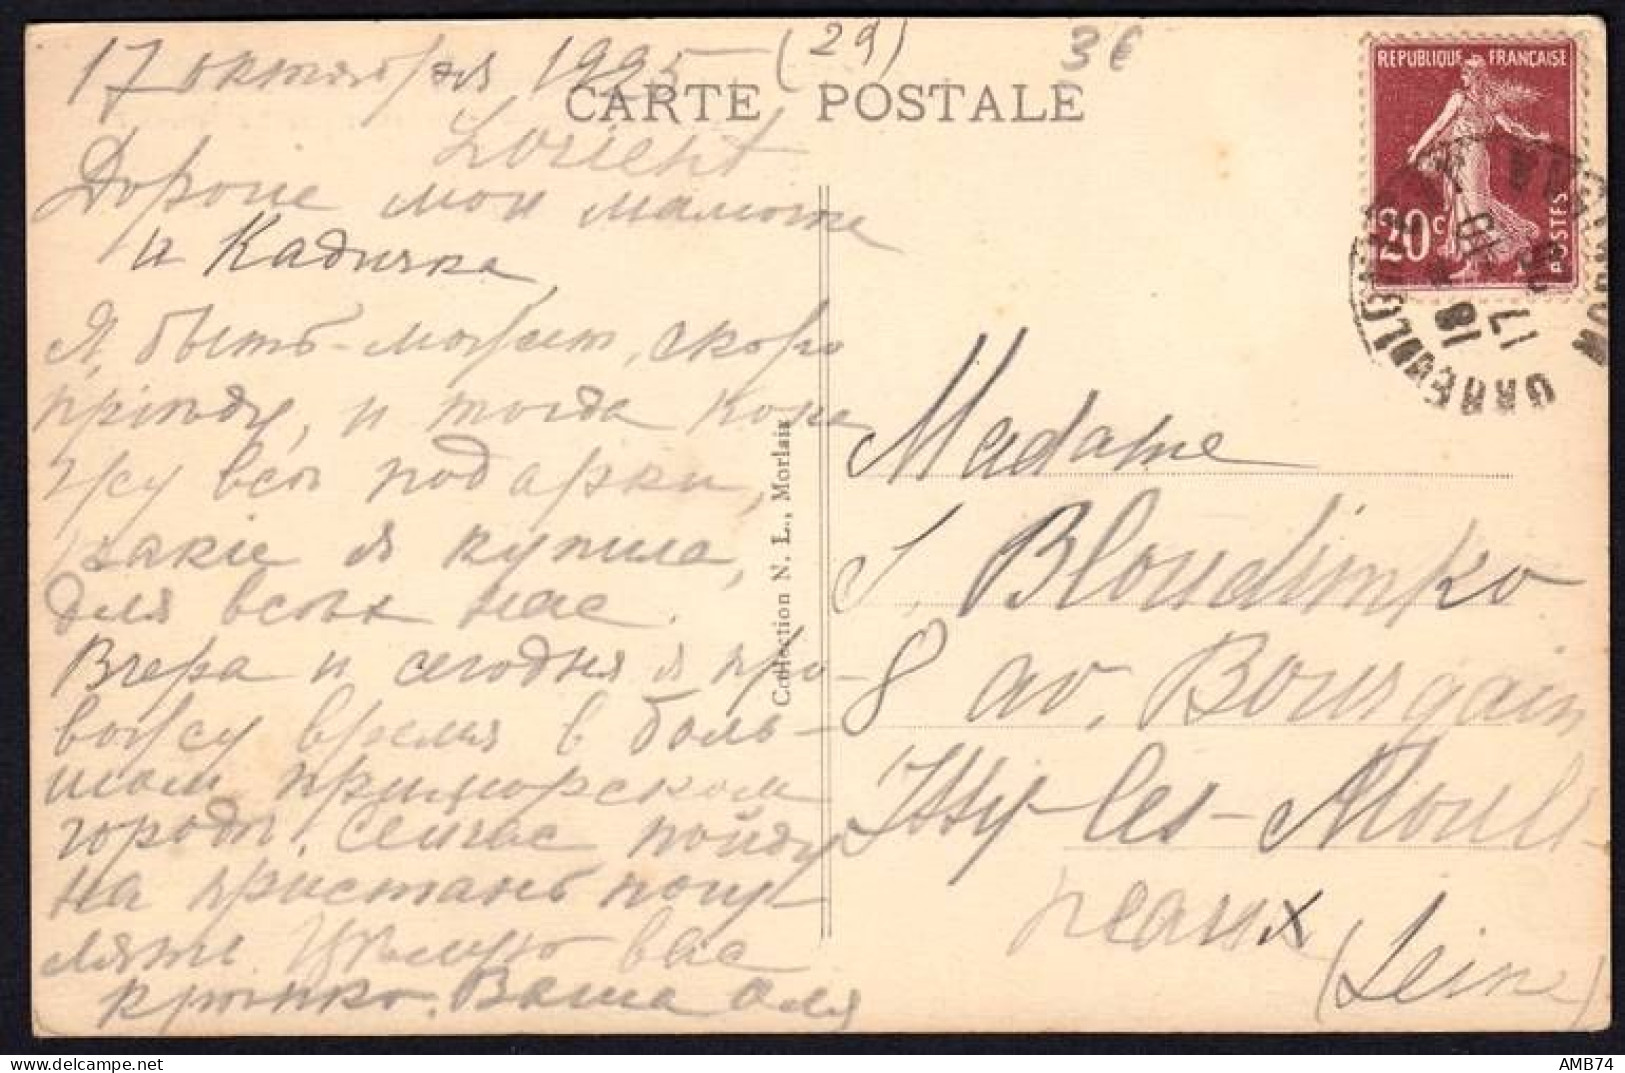 17 октября 1925 (29)
3€
CARTE POSTALE
Lorient
Дорогие мои мамочка
и Кадичка
Я, быть-может, скоро
прiѣду, и тогда пока
жу всѣ подарки,
какiе я купила,
для всѣхъ нас.
Вчера и сегодня я про-
вожу время в боль-
шом приморском
городѣ. Сейчас пойду
на пристань погу-
лять. Цѣлую вас
крѣпко. Ваша Оля
Collection N. L., Morlaix
REPUBLIQUE FRANÇAISE
20c
POSTES
17
18
Madame
S. Bloudimko
8 av. Bourgain
Issy-les-Mouli
neaux
(Seine)
AMB74